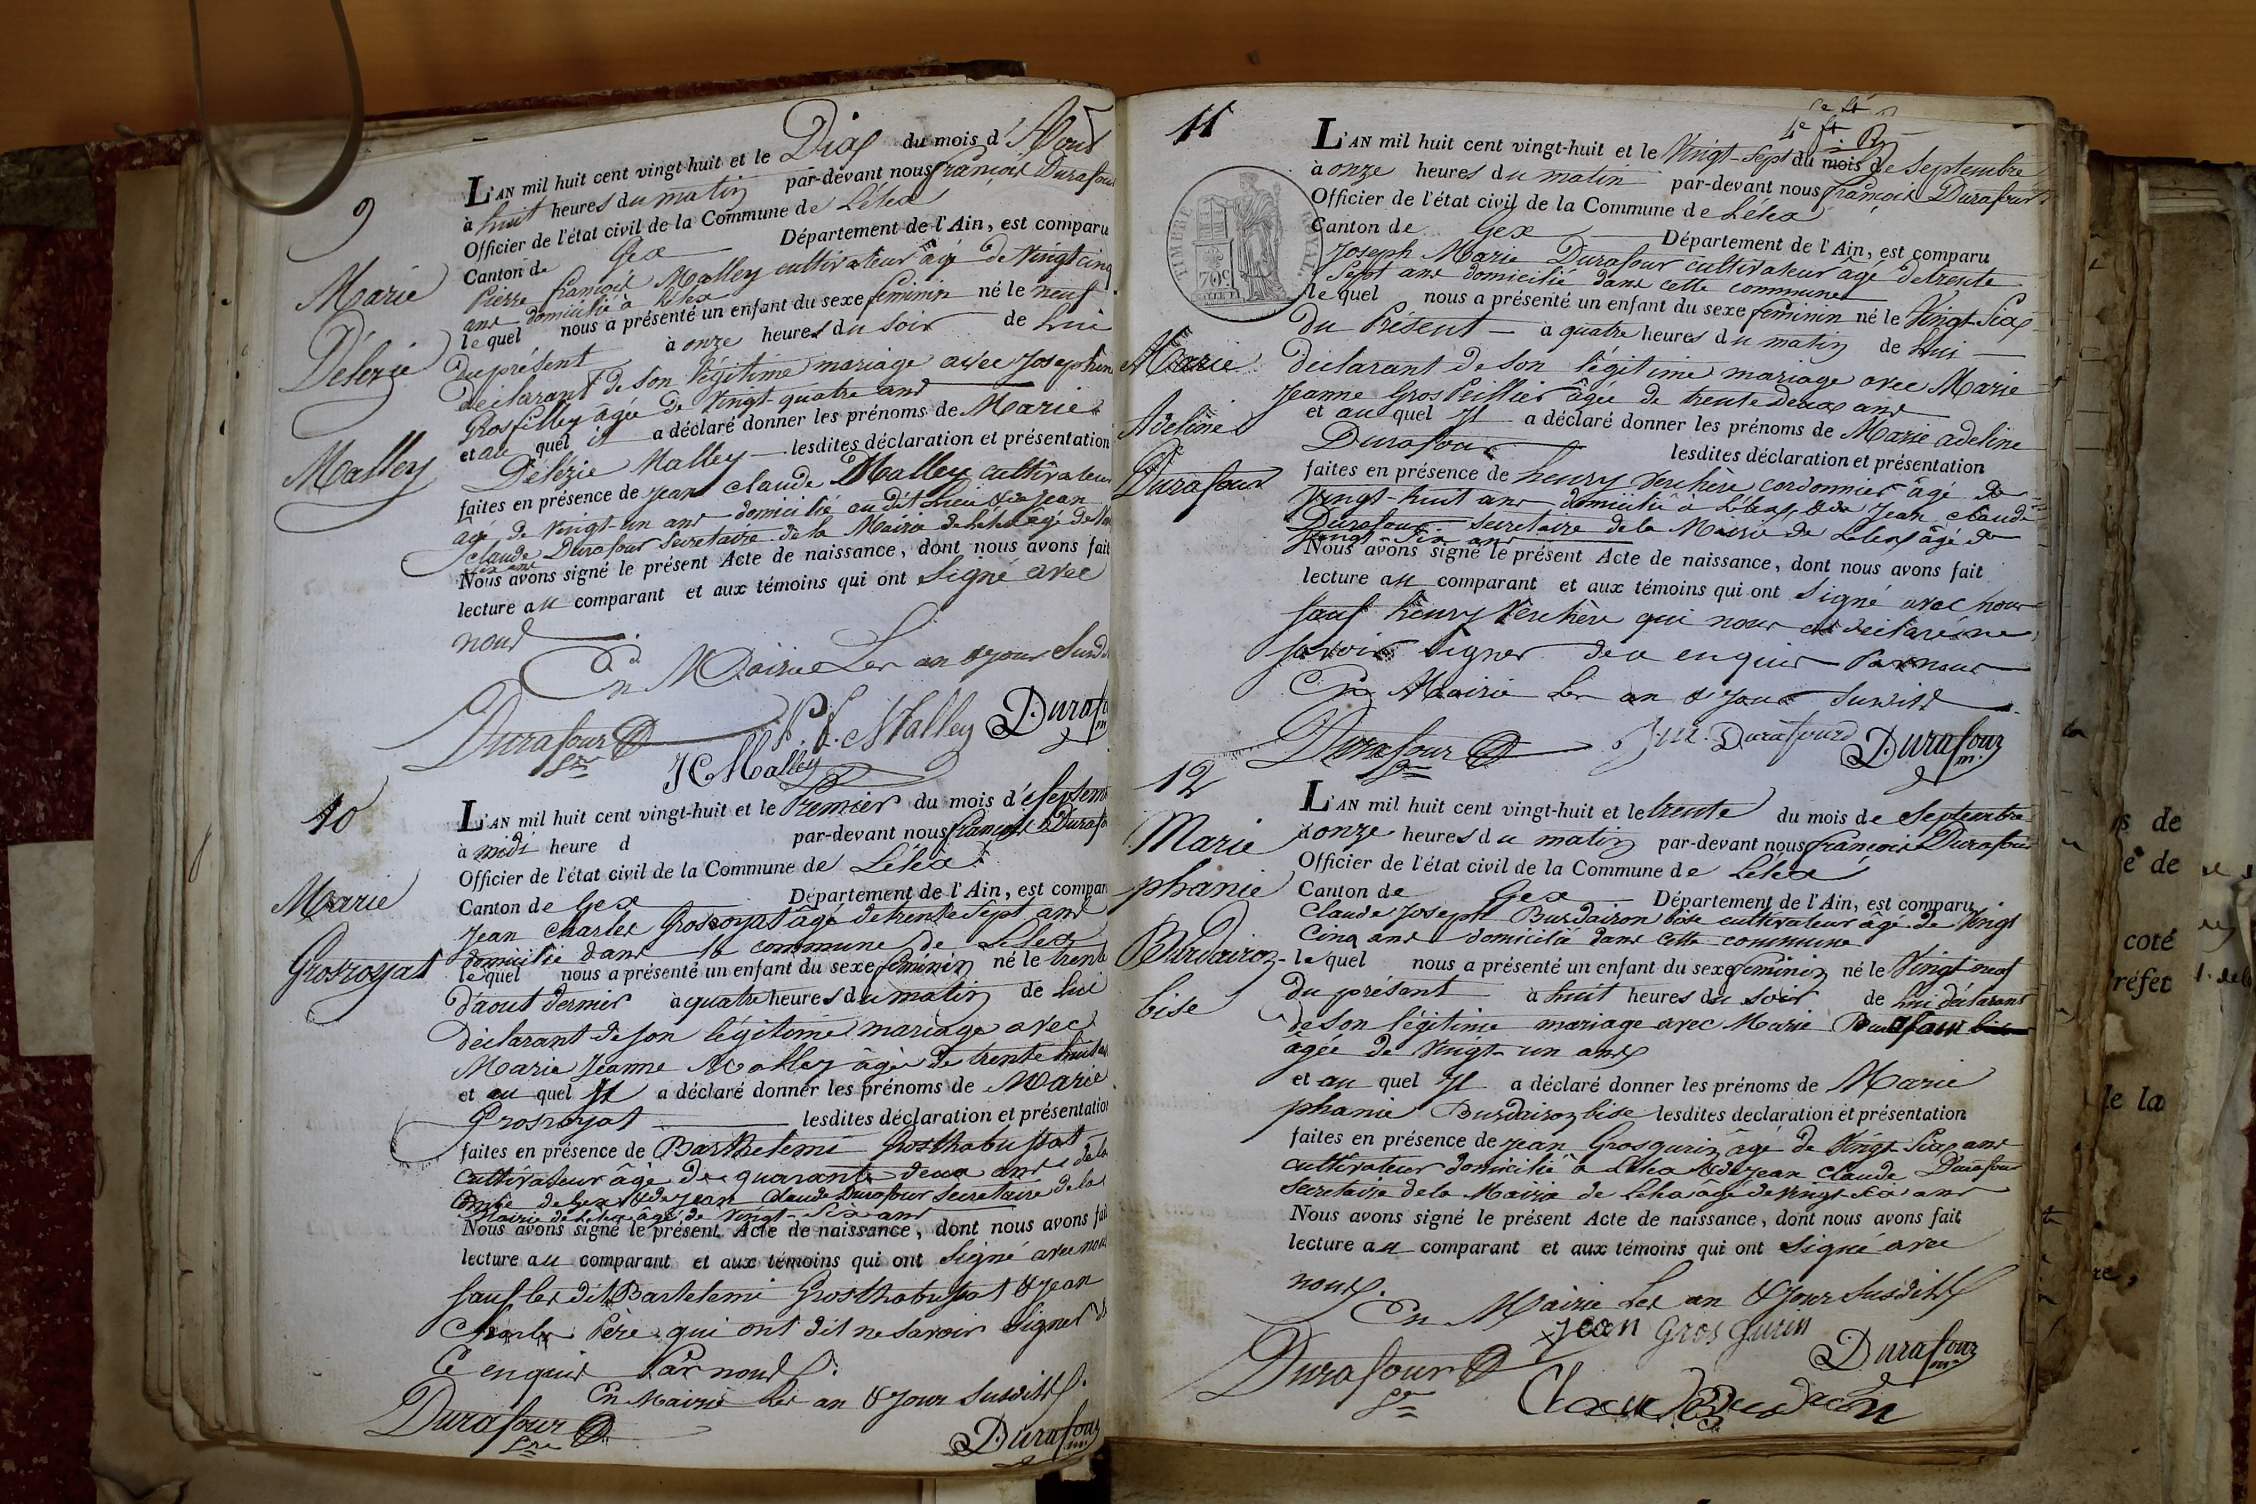 9
Marie
Délézie
Malley
L'AN mil huit cent vingt-huit et le Dix du mois d'Aout
à huit heures du matin par-devant nous françois Durafour
Officier de l'état civil de la Commune de Lélex
Canton de Gex Département de l'Ain, est comparu
Pierre françois Malley cultivateur âgé de vingt cinq
ans domicilié à Lélex
le quel nous a présenté un enfant du sexe feminin né le neuf
du présent à onze heures du soir de Lui
déclarant de son légitime mariage avec Josephine
Grosfilley âgée de vingt quatre ans
et au quel il a déclaré donner les prénoms de Marie
Délézie Malley lesdites déclaration et présentation
faites en présence de jean claude Malley cultivateur
âgé de vingt-un ans domicilié au dit Lieu & de jean
claude Durafour secretaire de la Mairie de Lélex âgé de
six ans
Nous avons signé le présent Acte de naissance, dont nous avons fait
lecture au comparant et aux témoins qui ont signé avec
nous
En Mairie Les an & jour susdits
Durafour P. f. Malley Durafour
sre JC Malley m.
10
Marie
Grosroyat
L'AN mil huit cent vingt-huit et le Premier du mois de septembre
à midi heure d par-devant nous françois Durafour
Officier de l'état civil de la Commune de Lélex
Canton de Gex Département de l'Ain, est comparu
Jean Charles Grosroyat âgé de trente sept ans
domicilié dans la commune de Lélex
le quel nous a présenté un enfant du sexe féminin né le trente
d'aout dernier à quatre heures du matin de Lui
déclarant de son légitime mariage avec
Marie Jeanne Malley âgée de trente huit ans
et au quel Il a déclaré donner les prénoms de Marie
Grosroyat lesdites déclaration et présentation
faites en présence de Barthelemi Grosthabussiat
cultivateur âgé de quarante deux ans de la
Combe de Gex & de jean Claude Durafour secretaire de la
Mairie de Lélex âgé de vingt-six ans
Nous avons signé le présent Acte de naissance, dont nous avons fait
lecture au comparant et aux témoins qui ont signé avec nous
sauf les dits Bartelemi Grosthabussiat & jean
Charles Père qui ont dit ne savoir signer de
Ce enquis Par nous
En Mairie Les an & jour susdits
Durafour Durafour
sre m.
11
TIMBRE ROYAL
70c
Marie
Adeline
Durafour
L'AN mil huit cent vingt-huit et le Vingt-sept du mois de Septembre
à onze heures du matin par-devant nous françois Durafour
Officier de l'état civil de la Commune de Lélex
Canton de Gex Département de l'Ain, est comparu
Joseph Marie Durafour cultivateur âgé de trente
sept ans domicilié dans cette commune
le quel nous a présenté un enfant du sexe féminin né le Vingt-Six
du Présent à quatre heures du matin de Lui
déclarant de son légitime mariage avec Marie
Jeanne GrosPeillier âgée de trente deux ans
et au quel Il a déclaré donner les prénoms de Marie adeline
Durafour lesdites déclaration et présentation
faites en présence de henry Verchère cordonnier âgé de
vingt-huit ans domicilié à Lélex & de Jean claude
Durafour secretaire de la Mairie de Lélex âgé de
vingt-six ans
Nous avons signé le présent Acte de naissance, dont nous avons fait
lecture au comparant et aux témoins qui ont signé avec nous
sauf henry Verchère qui nous a déclaré ne
savoir signer de ce enquis Par nous
En Mairie Les an & jour susdits
Durafour J.M. Durafour Durafour
sre m.
12
Marie
phanie
Burdairon-
bise
L'AN mil huit cent vingt-huit et le trente du mois de Septembre
à onze heures du matin par-devant nous françois Durafour
Officier de l'état civil de la Commune de Lélex
Canton de Gex Département de l'Ain, est comparu
Claude Joseph Burdairon bise cultivateur âgé de Vingt
Cinq ans domicilié dans cette commune
le quel nous a présenté un enfant du sexe feminin né le Vingt neuf
du présent à huit heures du soir de Lui déclarant
de son légitime mariage avec Marie Durafour
âgée de vingt-un ans
et au quel Il a déclaré donner les prénoms de Marie
phanie Burdairon bise lesdites declaration et présentation
faites en présence de jean Grosgurin âgé de Vingt-Six ans
cultivateur domicilié à Lélex & de jean claude Durafour
secretaire de la Mairie de Lélex âgé de vingt-six ans
Nous avons signé le présent Acte de naissance, dont nous avons fait
lecture au comparant et aux témoins qui ont signé avec
nous
En Mairie Les an & Jour susdits
jean Gros Gurin
Durafour Durafour
sre m.
s de
e de
coté
réfet
le la
re,